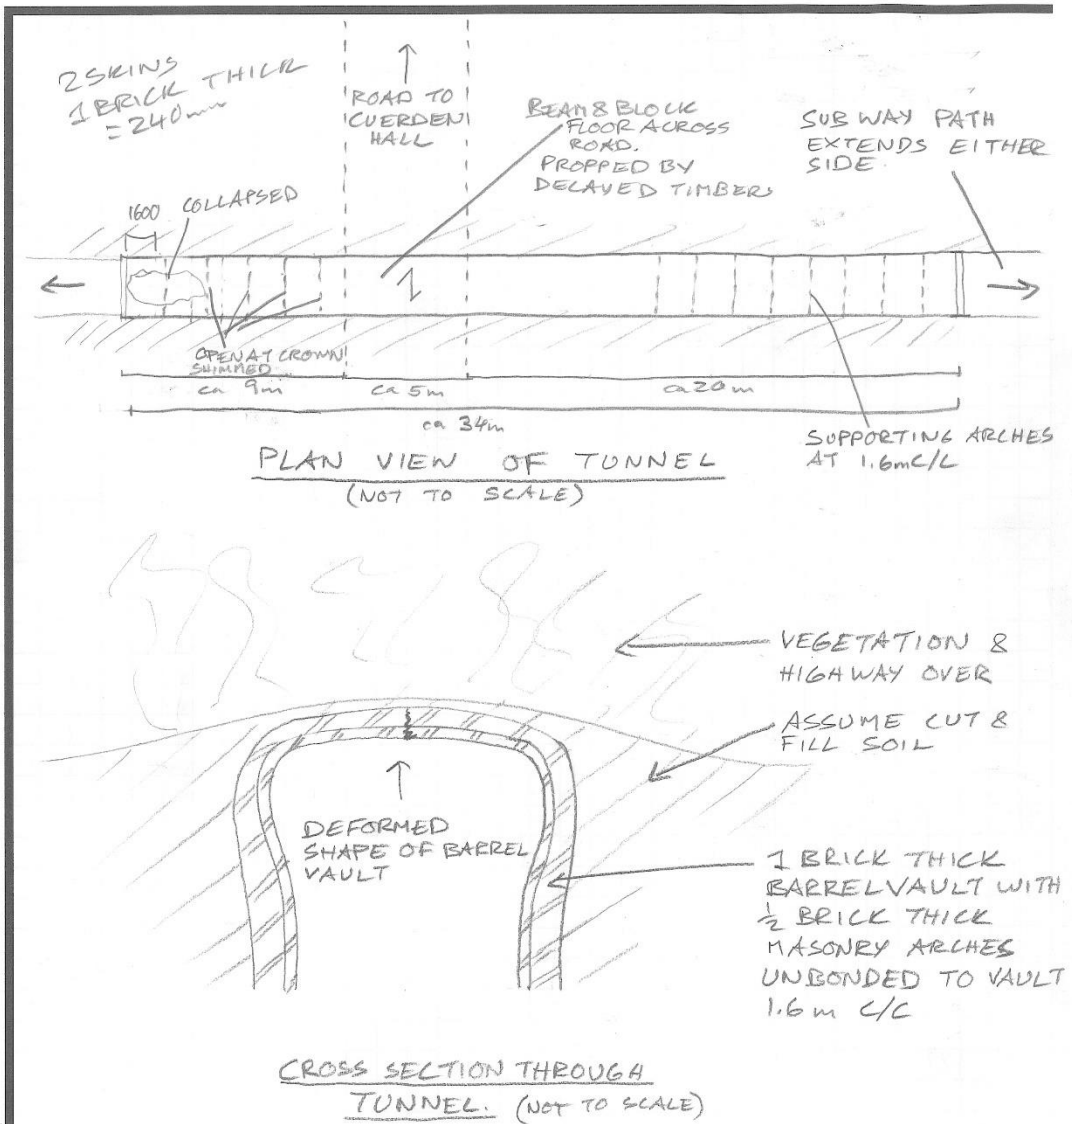 2 SKINS
1 BRICK THICK
= 240mm
ROAD TO
CUERDEN
HALL
BEAM & BLOCK
FLOOR ACROSS
ROAD.
PROPPED BY
DECAYED TIMBERS
SUBWAY PATH
EXTENDS EITHER
SIDE.
1600
COLLAPSED
OPEN AT CROWN
SHIMMED
ca 9m
ca 5m
ca 20m
ca 34m
SUPPORTING ARCHES
AT 1.6m C/L
PLAN VIEW OF TUNNEL
(NOT TO SCALE)
VEGETATION &
HIGHWAY OVER
ASSUME CUT &
FILL SOIL
DEFORMED
SHAPE OF BARREL
VAULT
1 BRICK THICK
BARREL VAULT WITH
½ BRICK THICK
MASONRY ARCHES
UNBONDED TO VAULT
1.6m C/C
CROSS SECTION THROUGH
TUNNEL. (NOT TO SCALE)